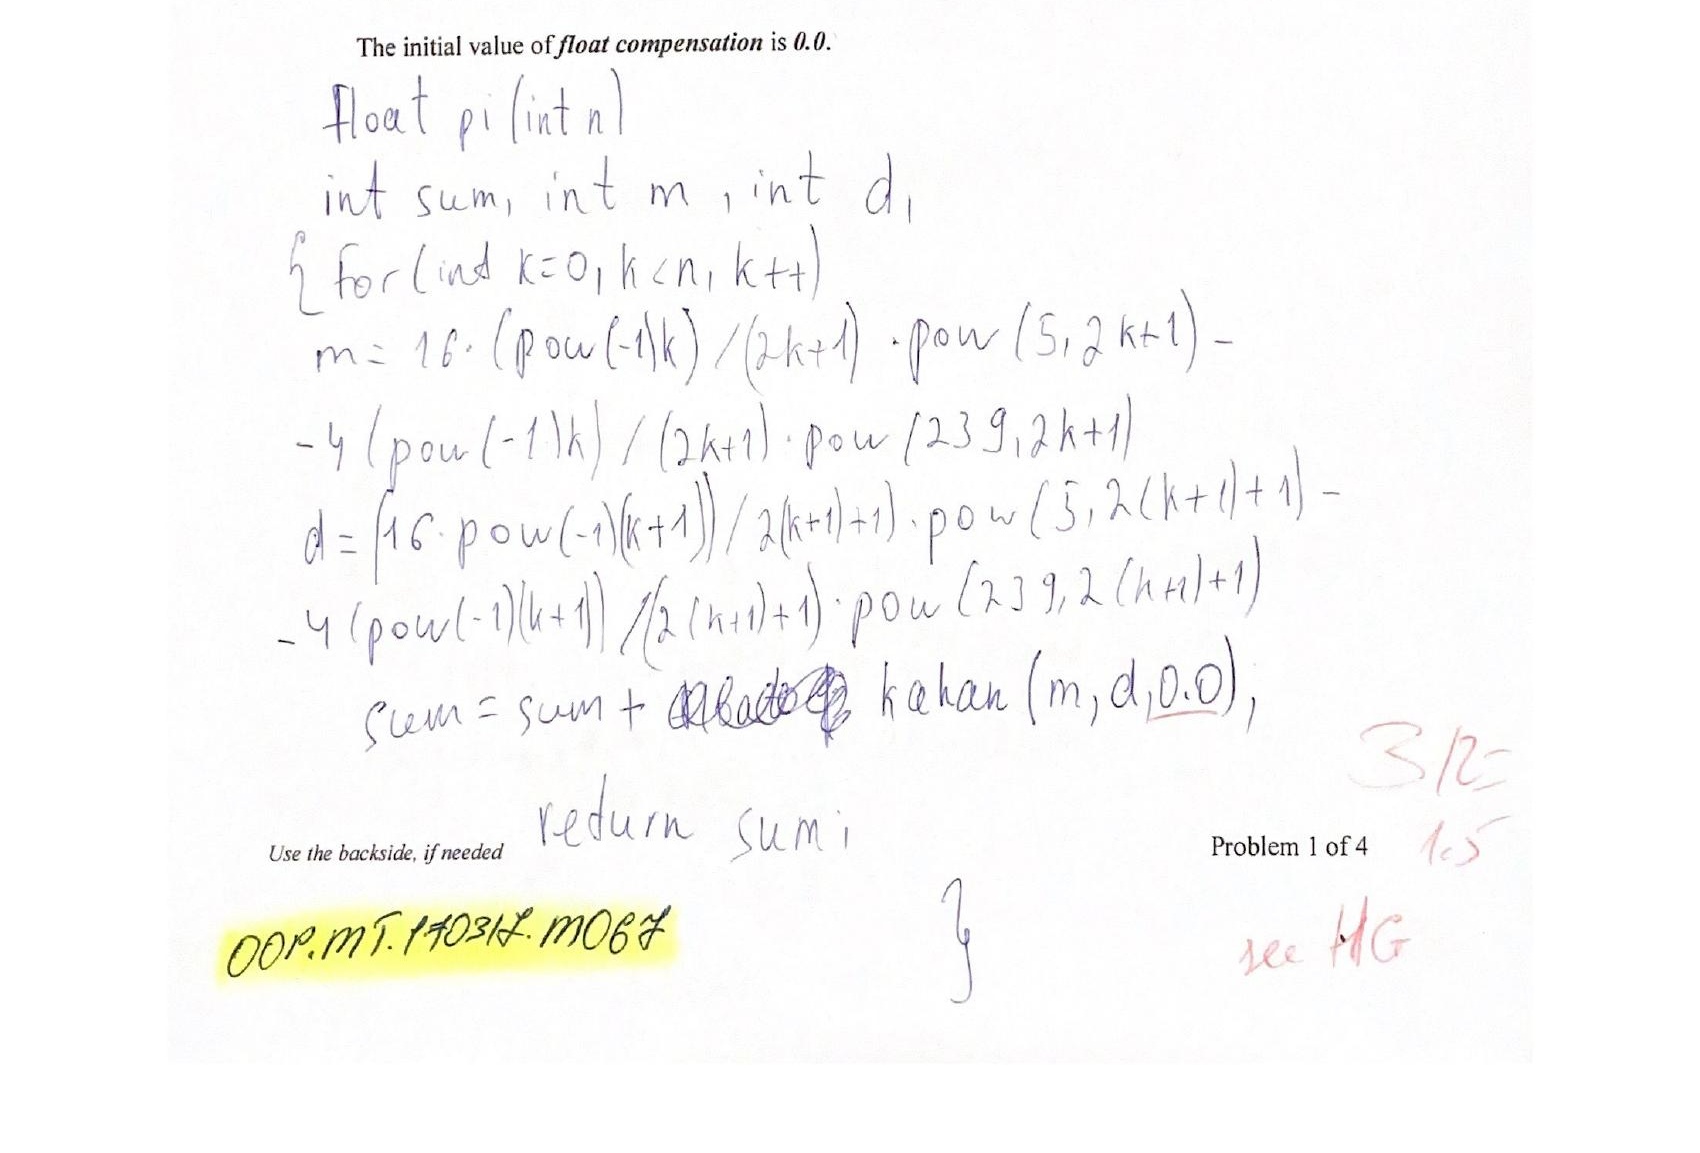 The initial value of float compensation is 0.0.
float pi (int n)
int sum, int m , int d,
{ for (int k=0, k<n, k++)
m= 16· (pow(-1)k) /(2k+1) ·pow (5,2k+1) -
-4 (pow(-1)k) / (2k+1) · pow (239,2k+1)
d = (16· pow(-1)(k+1)) / 2(k+1)+1) · pow (5,2(k+1)+1) -
-4 (pow(-1)(k+1)) /(2(k+1)+1) · pow (239,2(k+1)+1)
sum = sum + kahan (m,d,0.0),
3/2=
return sum;
Use the backside, if needed
Problem 1 of 4
1.5
}
OOP.MT.170317.M067
see HG